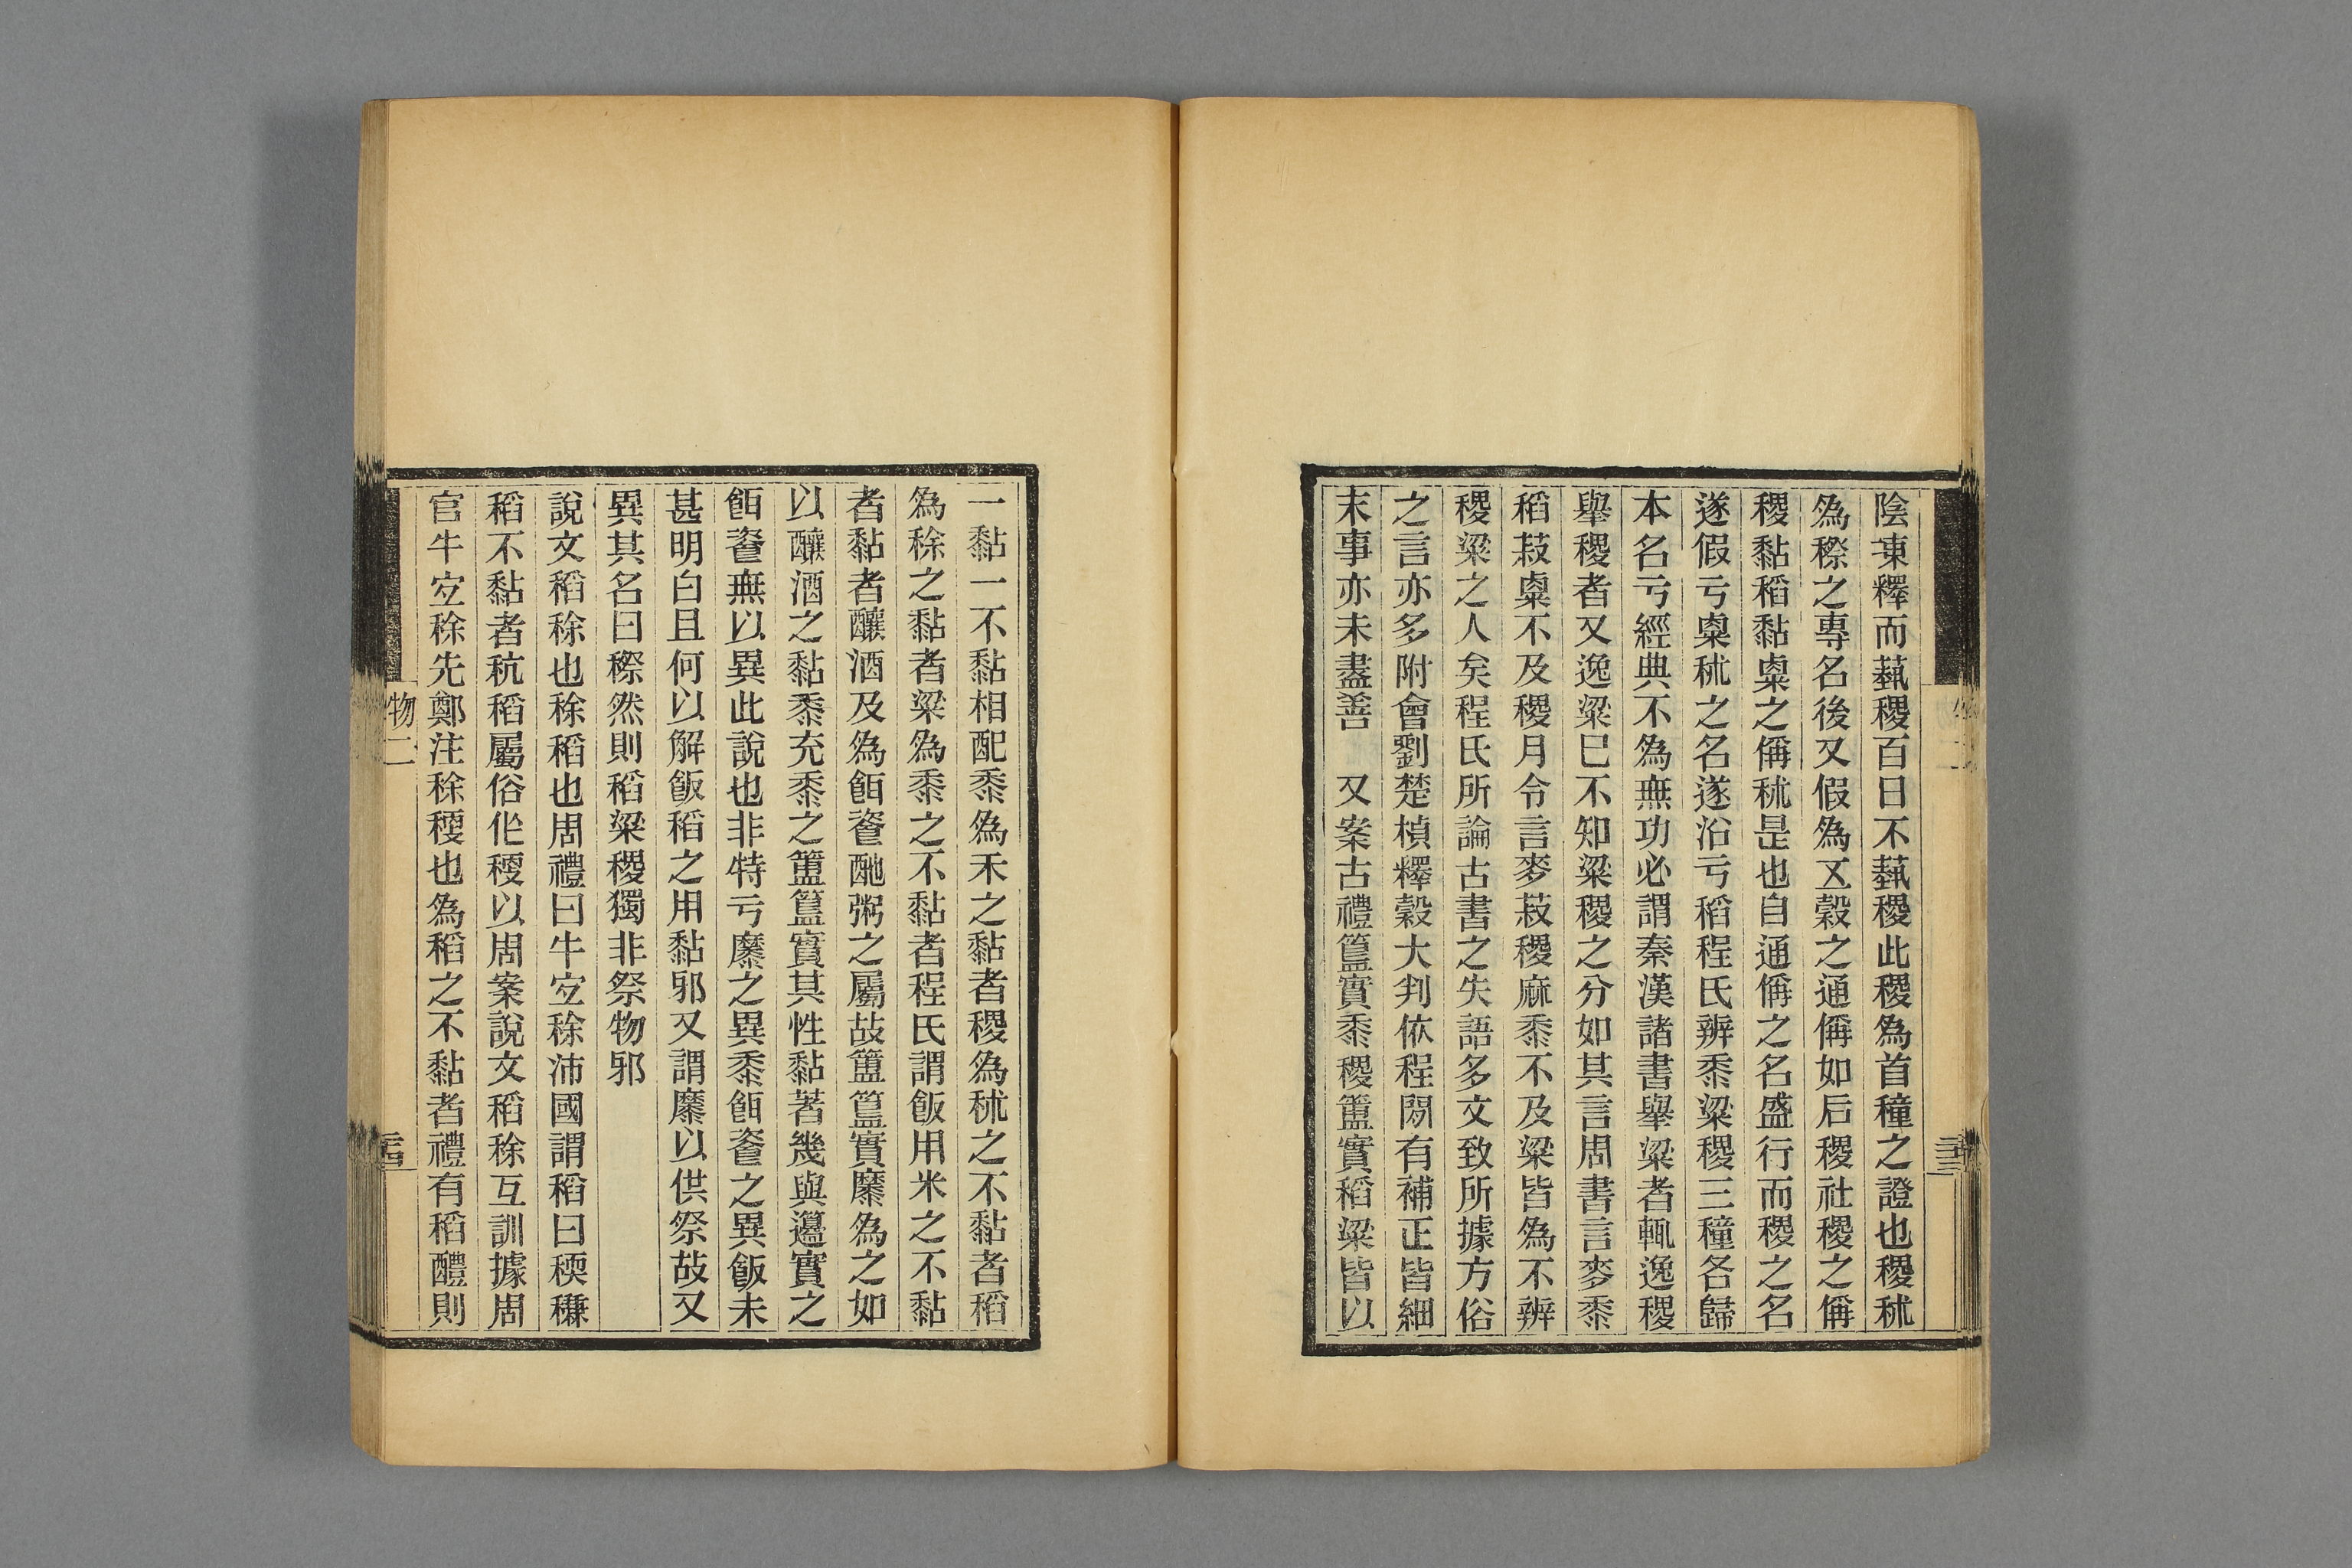 陰凍釋而蓺稷百日不蓺稷此稷為首穜之證也稷秫
為穄之專名後又假為五穀之通偁如后稷社稷之偁
稷黏稻黏㮚之偁秫是也自通偁之名盛行而稷之名
遂假亏㮚秫之名遂沿亏稻程氏辨黍粱稷三穜各歸
本名亏經典不為無功必謂秦漢諸書舉粱者輒逸稷
舉稷者又逸粱巳不知粱稷之分如其言周書言麥黍
稻菽㮚不及稷月令言麥菽稷麻黍不及粱皆為不辨
稷粱之人矣程氏所論古書之失語多文致所據方俗
之言亦多附會劉楚楨釋穀大判依程閒有補正皆細
末事亦未盡善　又案古禮簋實黍稷簠實稻粱皆以
一黏一不黏相配黍為禾之黏者稷為秫之不黏者稻
為稌之黏者粱為黍之不黏者程氏謂飯用米之不黏
者黏者釀酒及為餌餈酏粥之屬故簠簋實穈為之如
以釀酒之黏黍充黍之簠簋實其性黏著幾與籩實之
餌餈無以異此說也非特亏穈之異黍餌餈之異飯未
甚明白且何以解飯稻之用黏邪又謂穈以供祭故又
異其名曰穄然則稻粱稷獨非祭物邪
說文稻稌也稌稻也周禮曰牛宐稌沛國謂稻曰稬稴
稻不黏者秔稻屬俗作稉以周案說文稻稌互訓據周
官牛宐稌先鄭注稌稉也為稻之不黏者禮有稻醴則
物二
二十四
二十三